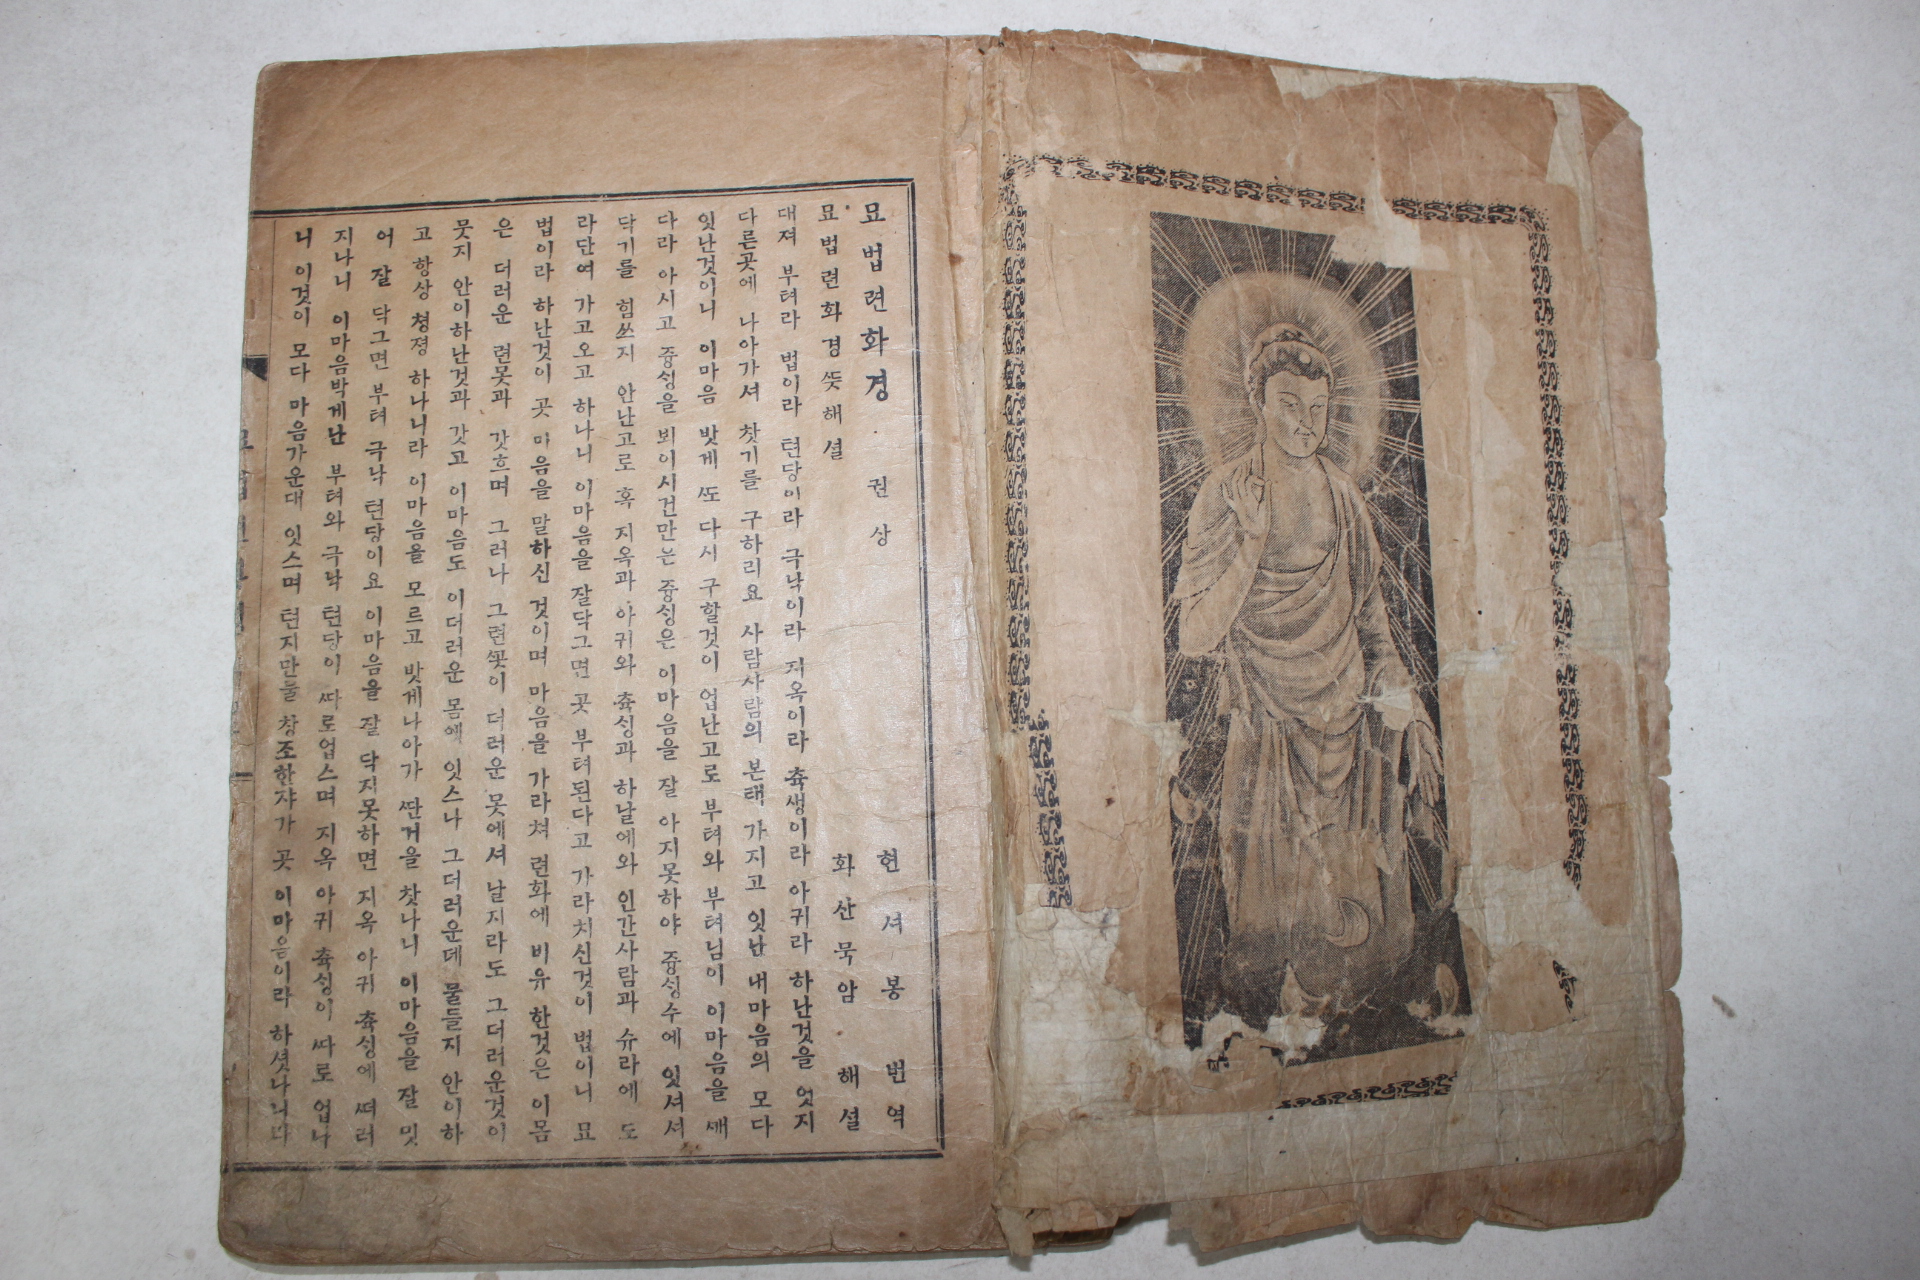 묘법련화경 권상 현셔봉 번역
묘법련화경뜻해셜 화산묵암 해셜
대져 부텨라 법이라 텬당이라 극낙이라 지옥이라 츅생이라 아귀라 하난것을 엇지
다른곳에 나아가셔 찻기를 구하리요 사람사람의 본태 가지고 잇난 내마음의 모다
잇난것이니 이마음 밧게 ᄯᅩ다시 구할것이 업난고로 부텨와 부텨님이 이마음을 ᄭᅢ
다라 아시고 즁ᄉᆡᆼ을 뵈이시건만는 즁ᄉᆡᆼ은 이마음을 잘 아지못하야 즁ᄉᆡᆼ수에 잇셔셔
닥기를 힘쓰지 안난고로 혹 지옥과 아귀와 츅ᄉᆡᆼ과 하날에와 인간사람과 슈라에 도
라단여 가고오고 하나니 이마음을 잘닥그면 곳 부텨된다고 가라치신것이 법이니 묘
법이라 하난것이 곳 마음을 말하신 것이며 마음을 가라쳐 련화에 비유 한것은 이몸
은 더러운 련못과 갓흐며 그러나 그련ᄭᅩᆺ이 더러운 못에셔 날지라도 그더러운것이
뭇지 안이하난것과 갓고 이마음도 이더러운 몸에 잇스나 그더러운데 물들지 안이하
고 항상 쳥졍 하나니라 이마음을 모르고 밧게나아가 ᄯᅡᆫ거을 찻나니 이마음을 잘 밋
어 잘 닥그면 부텨 극낙 텬당이요 이마음을 잘 닥지못하면 지옥 아귀 츅ᄉᆡᆼ에 ᄯᅥ러
지나니 이마음박게난 부텨와 극낙 텬당이 ᄯᅡ로업스며 지옥 아귀 츅ᄉᆡᆼ이 ᄯᅡ로 업나
니 이것이 모다 마음가운대 잇스며 텬지만물 창조한쟈가 곳 이마음이라 하셧나니다